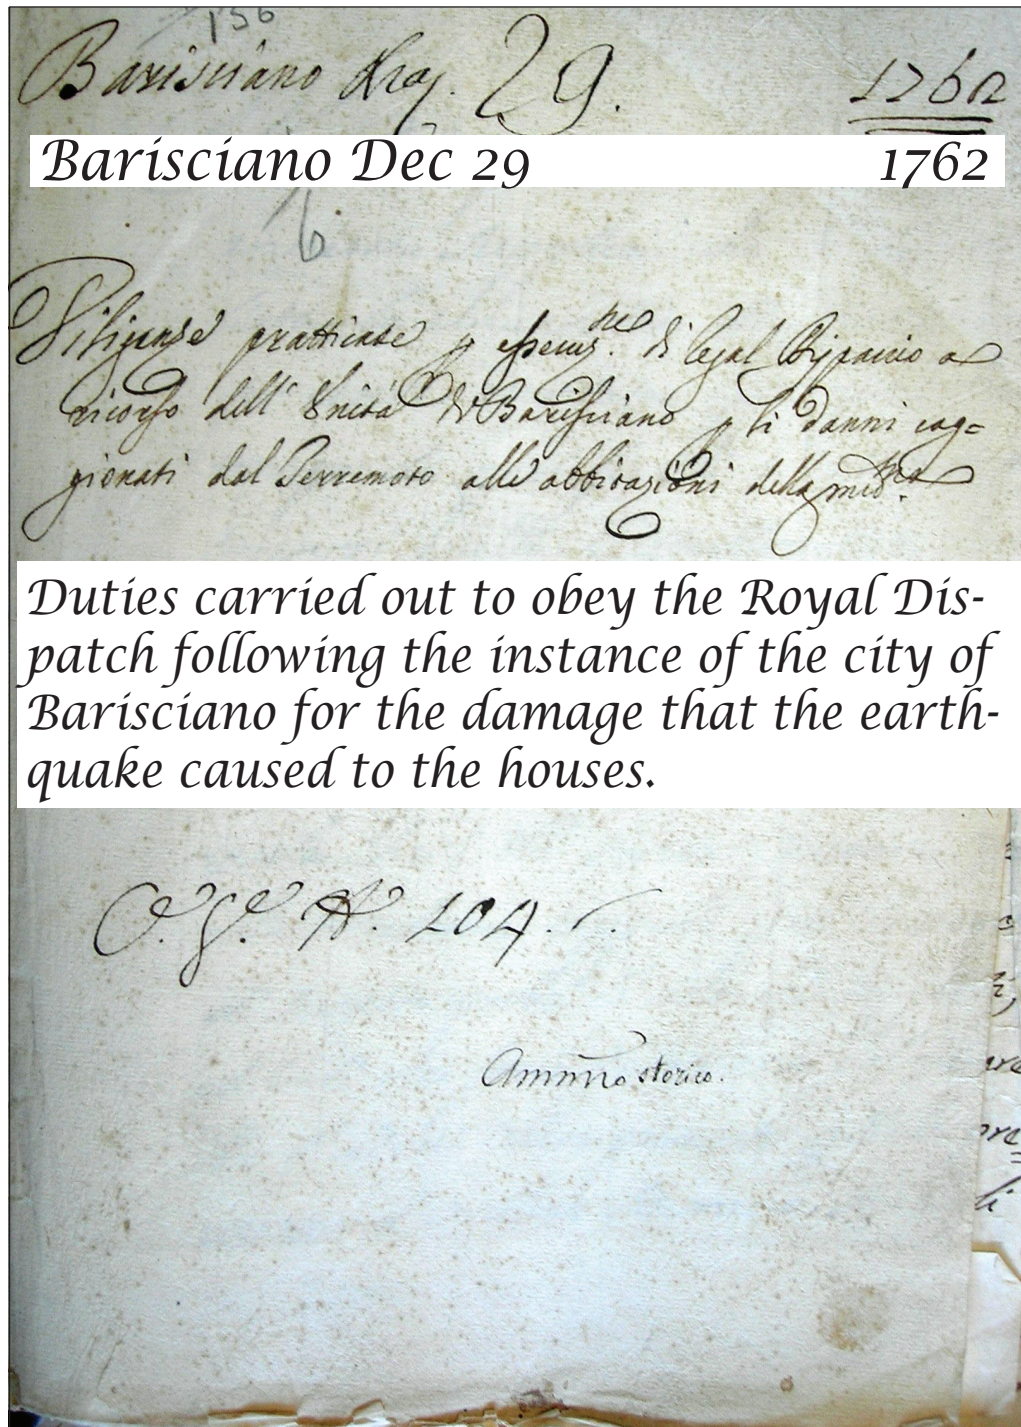 156
Barisciano Xraj. 29. 1762
Barisciano Dec 29 1762
6
Diligenze pratticate p essecuz.ne di legal Dispaccio a
ricorso dell' Unità di Barisciano p li danni cag=
gionati dal Terremoto alle abbitazioni della med.ma
Duties carried out to obey the Royal Dis-
patch following the instance of the city of
Barisciano for the damage that the earth-
quake caused to the houses.
104.
Ammno storico.
li